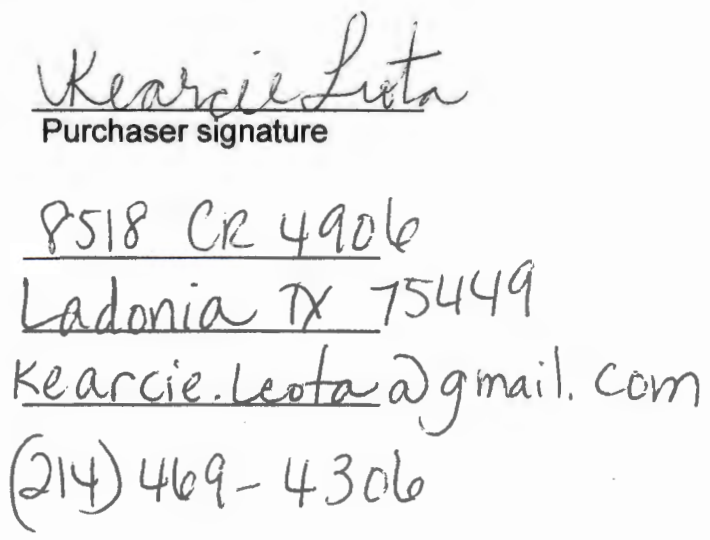 Kearcie Leota
Purchaser signature
8518 CR 4906
Ladonia TX 75449
Kearcie.Leota@gmail.com
(214) 469-4306